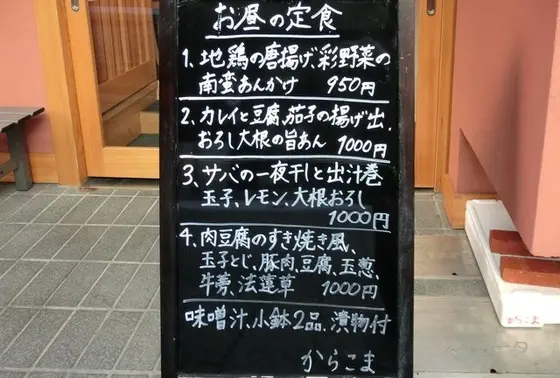 お昼の定食
1、地鶏の唐揚げ、彩野菜の
南蛮あんかけ 950円
2、カレイと豆腐、茄子の揚げ出、
おろし大根の旨あん 1000円
3、サバの一夜干しと出汁巻
玉子、レモン、大根おろし
1000円
4、肉豆腐のすき焼き風、
玉子とじ、豚肉、豆腐、玉葱、
牛蒡、法蓮草 1000円
味噌汁、小鉢2品、漬物付
からこま
からこま